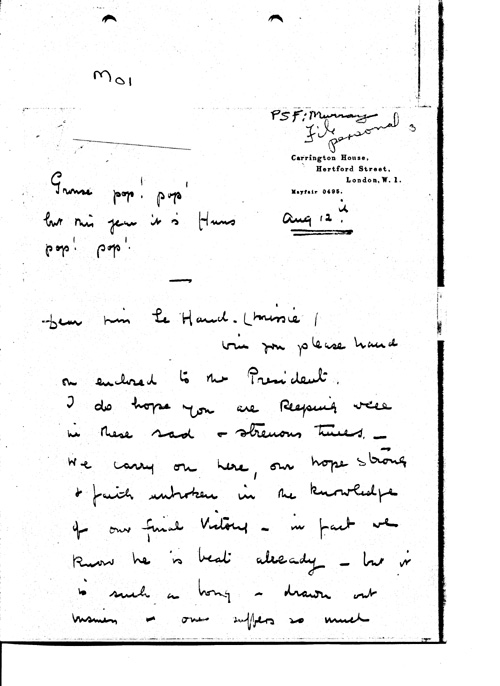 M01
PSF: Murray
File
personal
Carrington House,
Hertford Street,
London, W. 1.
Mayfair 0495.
Aug 12th
Grouse pop! pop!
but this year it is Huns
pop! pop!
Dear Miss Le Hand. (Missie)
Will you please hand
on enclosed to the President.
I do hope you are keeping well
in these sad & strenuous times. —
We carry on here, our hope strong
& faith unbroken in the knowledge
of our final Victory — in fact we
know he is beat already — but it
is such a long - drawn out
business & one suffers so much